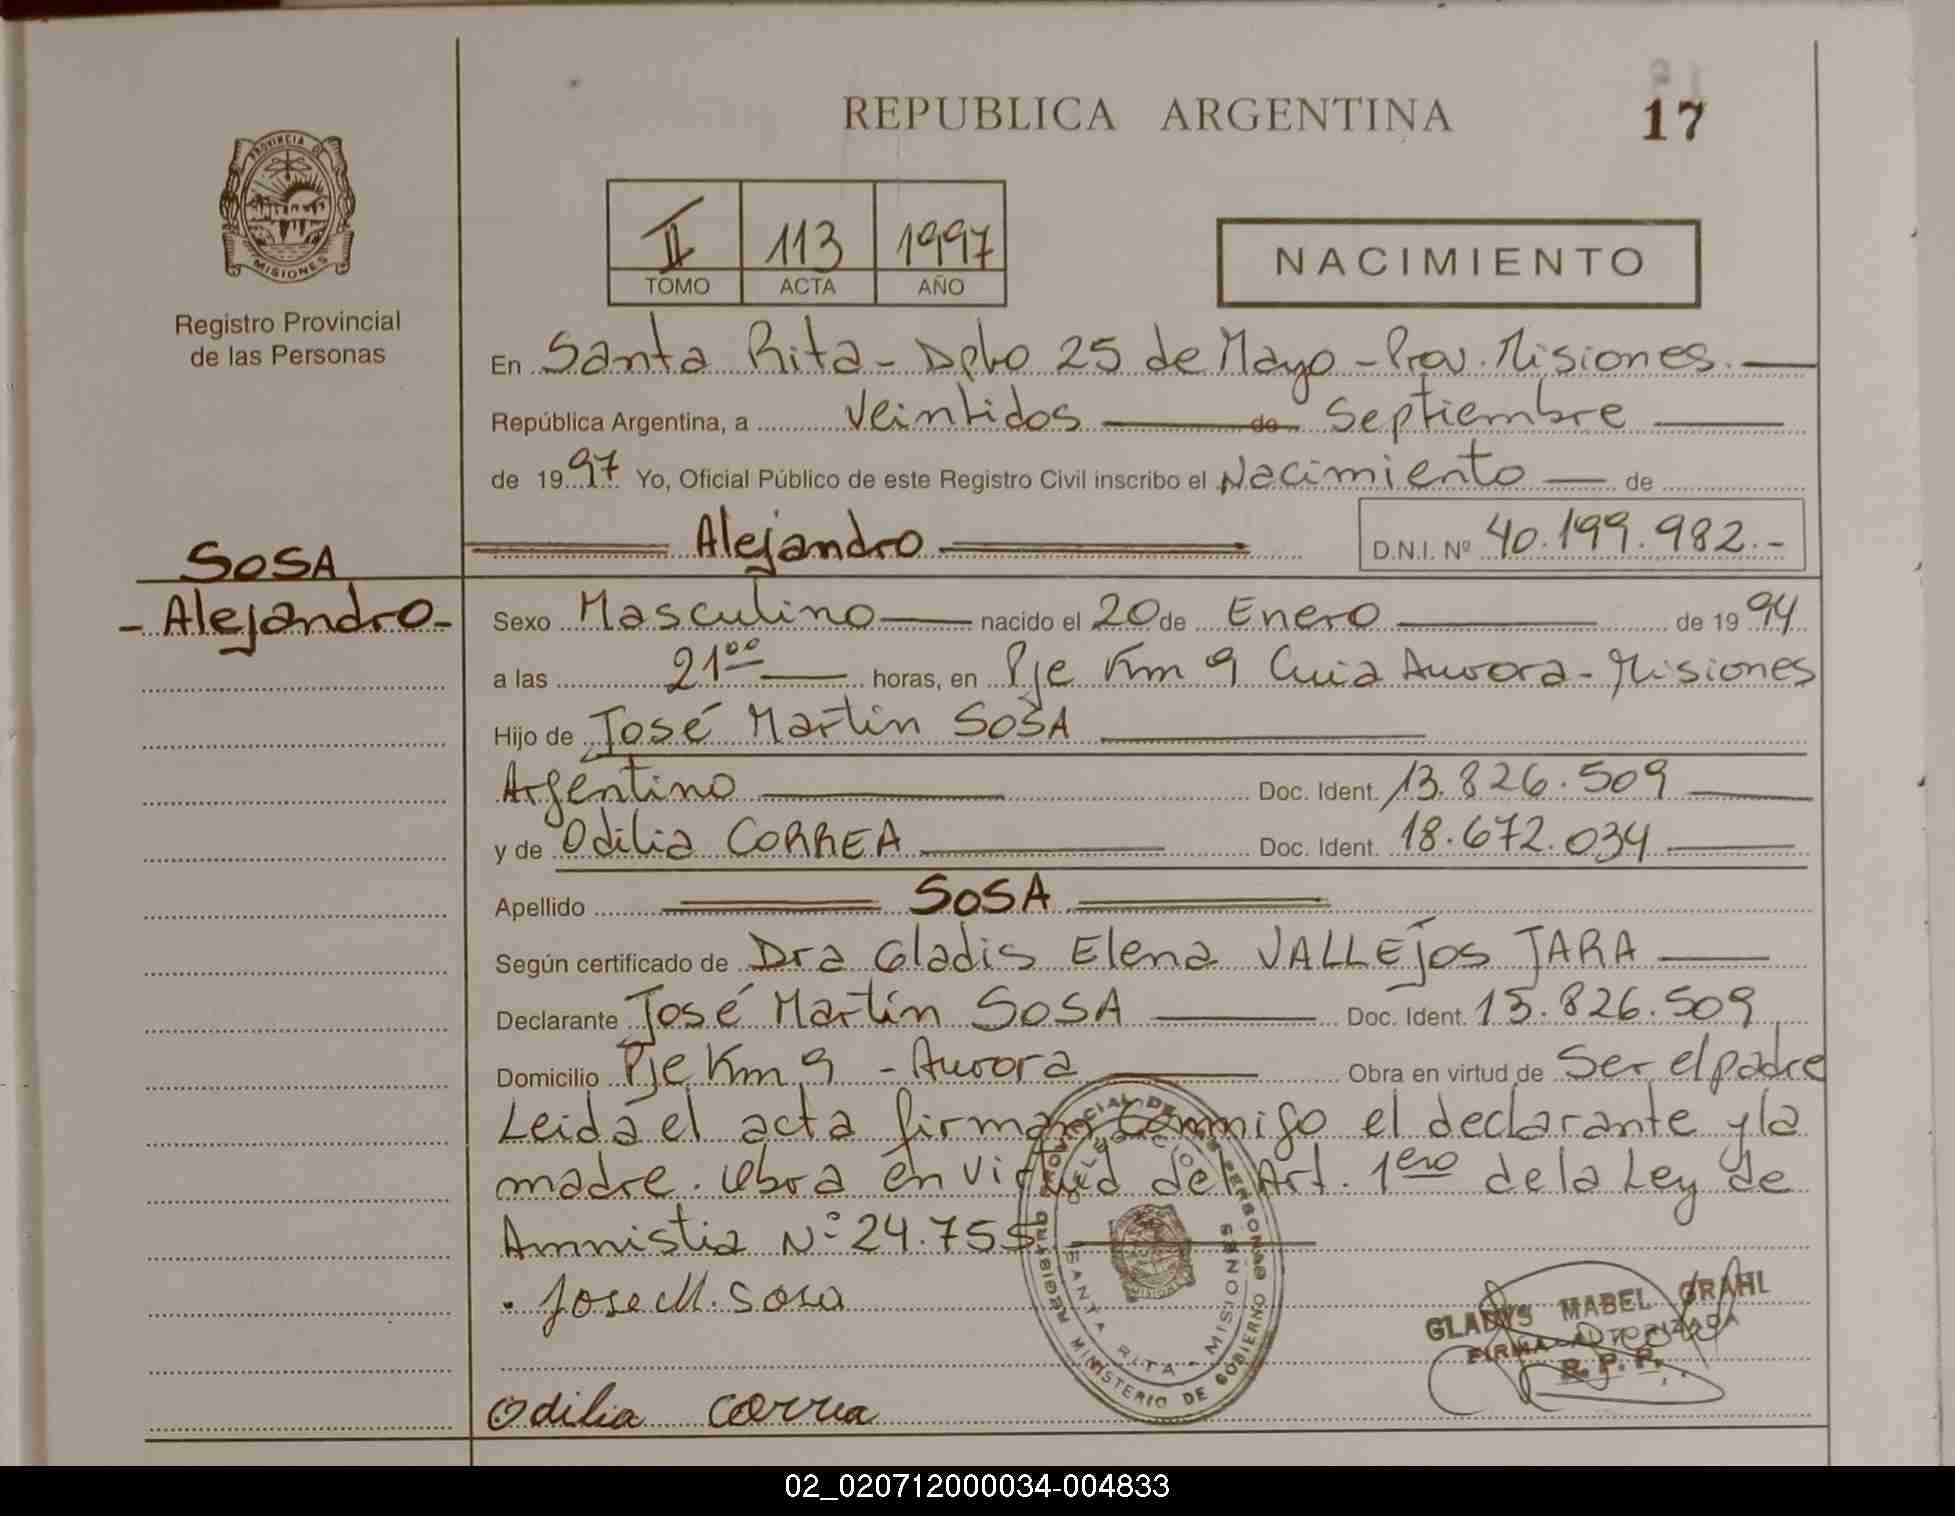 REPUBLICA ARGENTINA
17
PROVINCIA DE
MISIONES
Registro Provincial
de las Personas
II 113 1997
TOMO ACTA AÑO
NACIMIENTO
En Santa Rita - Dpto 25 de Mayo - Prov. Misiones.
República Argentina, a veintidos de Septiembre
de 1997 Yo, Oficial Público de este Registro Civil inscribo el Nacimiento de
Alejandro D.N.I. Nº 40.199.982.-
SOSA
- Alejandro -
Sexo Masculino nacido el 20 de Enero de 1994
a las 21ºº horas, en Pje Km 9 Cuia Aurora - Misiones
Hijo de José Martín SOSA
Argentino Doc. Ident. 13.826.509
y de Odilia CORREA Doc. Ident. 18.672.034
Apellido SOSA
Según certificado de Dra Gladis Elena VALLEJOS JARA
Declarante José Martín SOSA Doc. Ident. 13.826.509
Domicilio Pje Km 9 - Aurora Obra en virtud de Ser el padre
Leida el acta firman conmigo el declarante y la
madre. Obra en virtud del Art. 1ero de la Ley de
Amnistia Nº 24.755
. Jose M. Sosa
Odilia Correa
REGISTRO PROVINCIAL DE LAS PERSONAS
MINISTERIO DE GOBIERNO
SANTA RITA - MISIONES
GLADYS MABEL GRAHL
FIRMA AUTORIZADA
R.P.P.
02_020712000034-004833